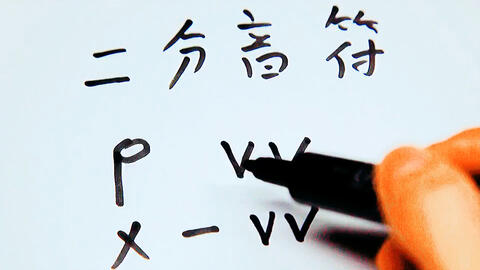 二分音符
ρ VV
X - VV